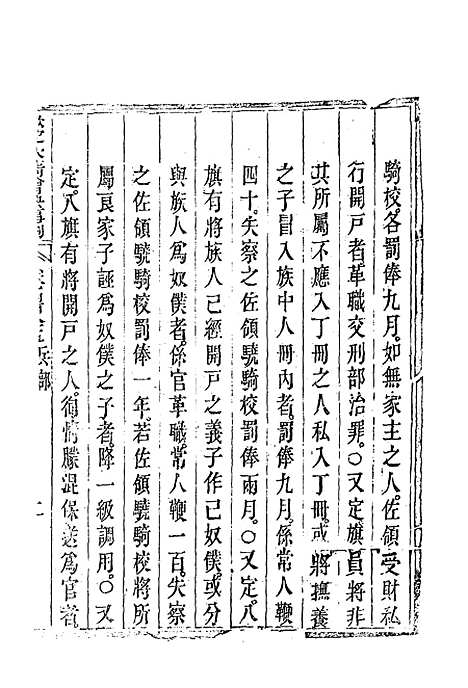 騎校各罰俸九月。如無家主之人。佐領受財私
行開戶者。革職交刑部治罪。○又定。旗員將非
其所屬不應入丁冊之人。私入丁冊。或將撫養
之子冒入族中人冊內者。罰俸九月。係常人鞭
四十。失察之佐領驍騎校罰俸兩月。○又定。八
旗有將族人已經開戶之義子作已奴僕。或分
與族人爲奴僕者。係官革職。常人鞭一百。失察
之佐領驍騎校罰俸一年。若佐領驍騎校將所
屬良家子誣爲奴僕之子者。降一級調用。○又
定。八旗有將開戶之人。徇情朦混保送爲官者。